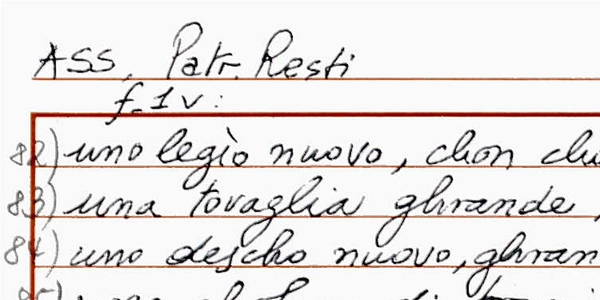 ASS, Patr. Resti
f. 1v:
82) uno legìo nuovo, chon
83) una tovaglia ghrande,
84) uno descho nuovo, ghran